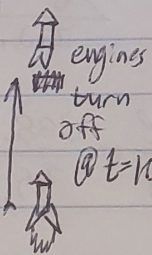 engines
turn
off
@ t=